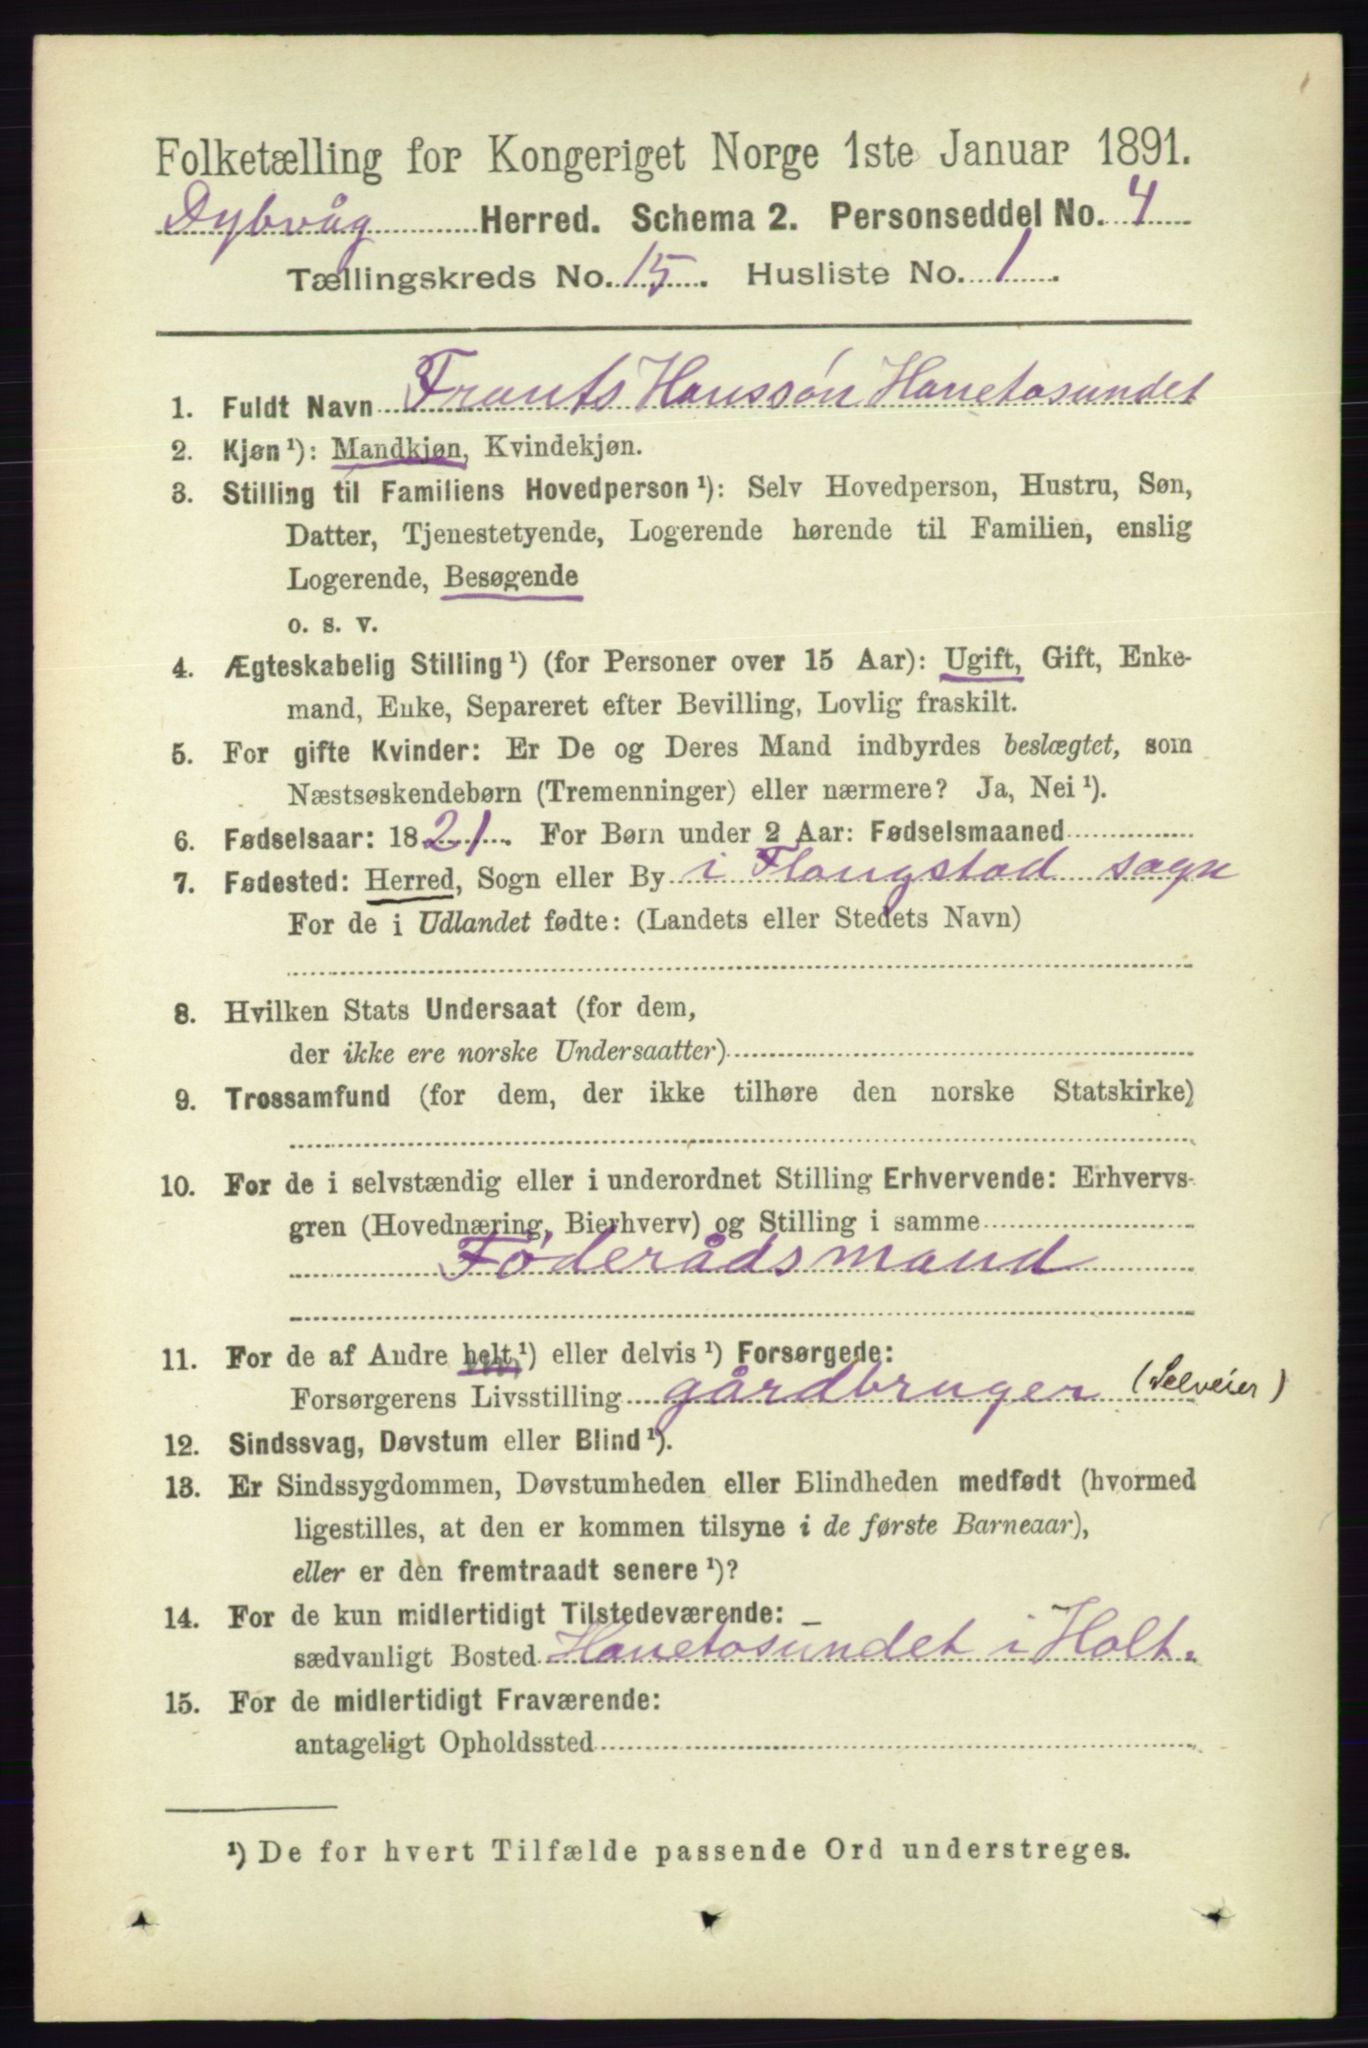 Folketælling for Kongeriget Norge 1ste Januar 1891.
Dybvåg Herred. Schema 2. Personseddel No. 4
Tællingskreds No. 15. Husliste No. 1.
1. Fuldt Navn Frants Hanssøn Hanetosundet
2. Kjøn ¹): Mandkjøn, Kvindekjøn.
3. Stilling til Familiens Hovedperson ¹): Selv Hovedperson, Hustru, Søn,
Datter, Tjenestetyende, Logerende hørende til Familien, enslig
Logerende, Besøgende
o. s. v.
4. Ægteskabelig Stilling ¹) (for Personer over 15 Aar): Ugift, Gift, Enke-
mand, Enke, Separeret efter Bevilling, Lovlig fraskilt.
5. For gifte Kvinder: Er De og Deres Mand indbyrdes beslægtet, som
Næstsøskendebørn (Tremenninger) eller nærmere? Ja, Nei ¹).
6. Fødselsaar: 1821. For Børn under 2 Aar: Fødselsmaaned
7. Fødested: Herred, Sogn eller By i Flangstad sogn
For de i Udlandet fødte: (Landets eller Stedets Navn)
8. Hvilken Stats Undersaat (for dem,
der ikke ere norske Undersaatter)
9. Trossamfund (for dem, der ikke tilhøre den norske Statskirke)
10. For de i selvstændig eller i underordnet Stilling Erhvervende: Erhvervs-
gren (Hovednæring, Bierhverv) og Stilling i samme
Føderådsmand
11. For de af Andre helt ¹) eller delvis ¹) Forsørgede:
Forsørgerens Livsstilling gårdbruger (Selveier)
12. Sindssvag, Døvstum eller Blind ¹).
13. Er Sindssygdommen, Døvstumheden eller Blindheden medfødt (hvormed
ligestilles, at den er kommen tilsyne i de første Barneaar),
eller er den fremtraadt senere ¹)?
14. For de kun midlertidigt Tilstedeværende:
sædvanligt Bosted Hanetosundet i Holt.
15. For de midlertidigt Fraværende:
antageligt Opholdssted
¹) De for hvert Tilfælde passende Ord understreges.